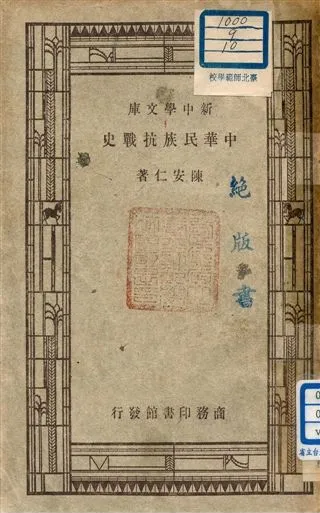 1000
9
10
校學範師北臺
庫文學中新
史戰抗族民華中
著仁安陳
絕
版
書
行發館書印務商